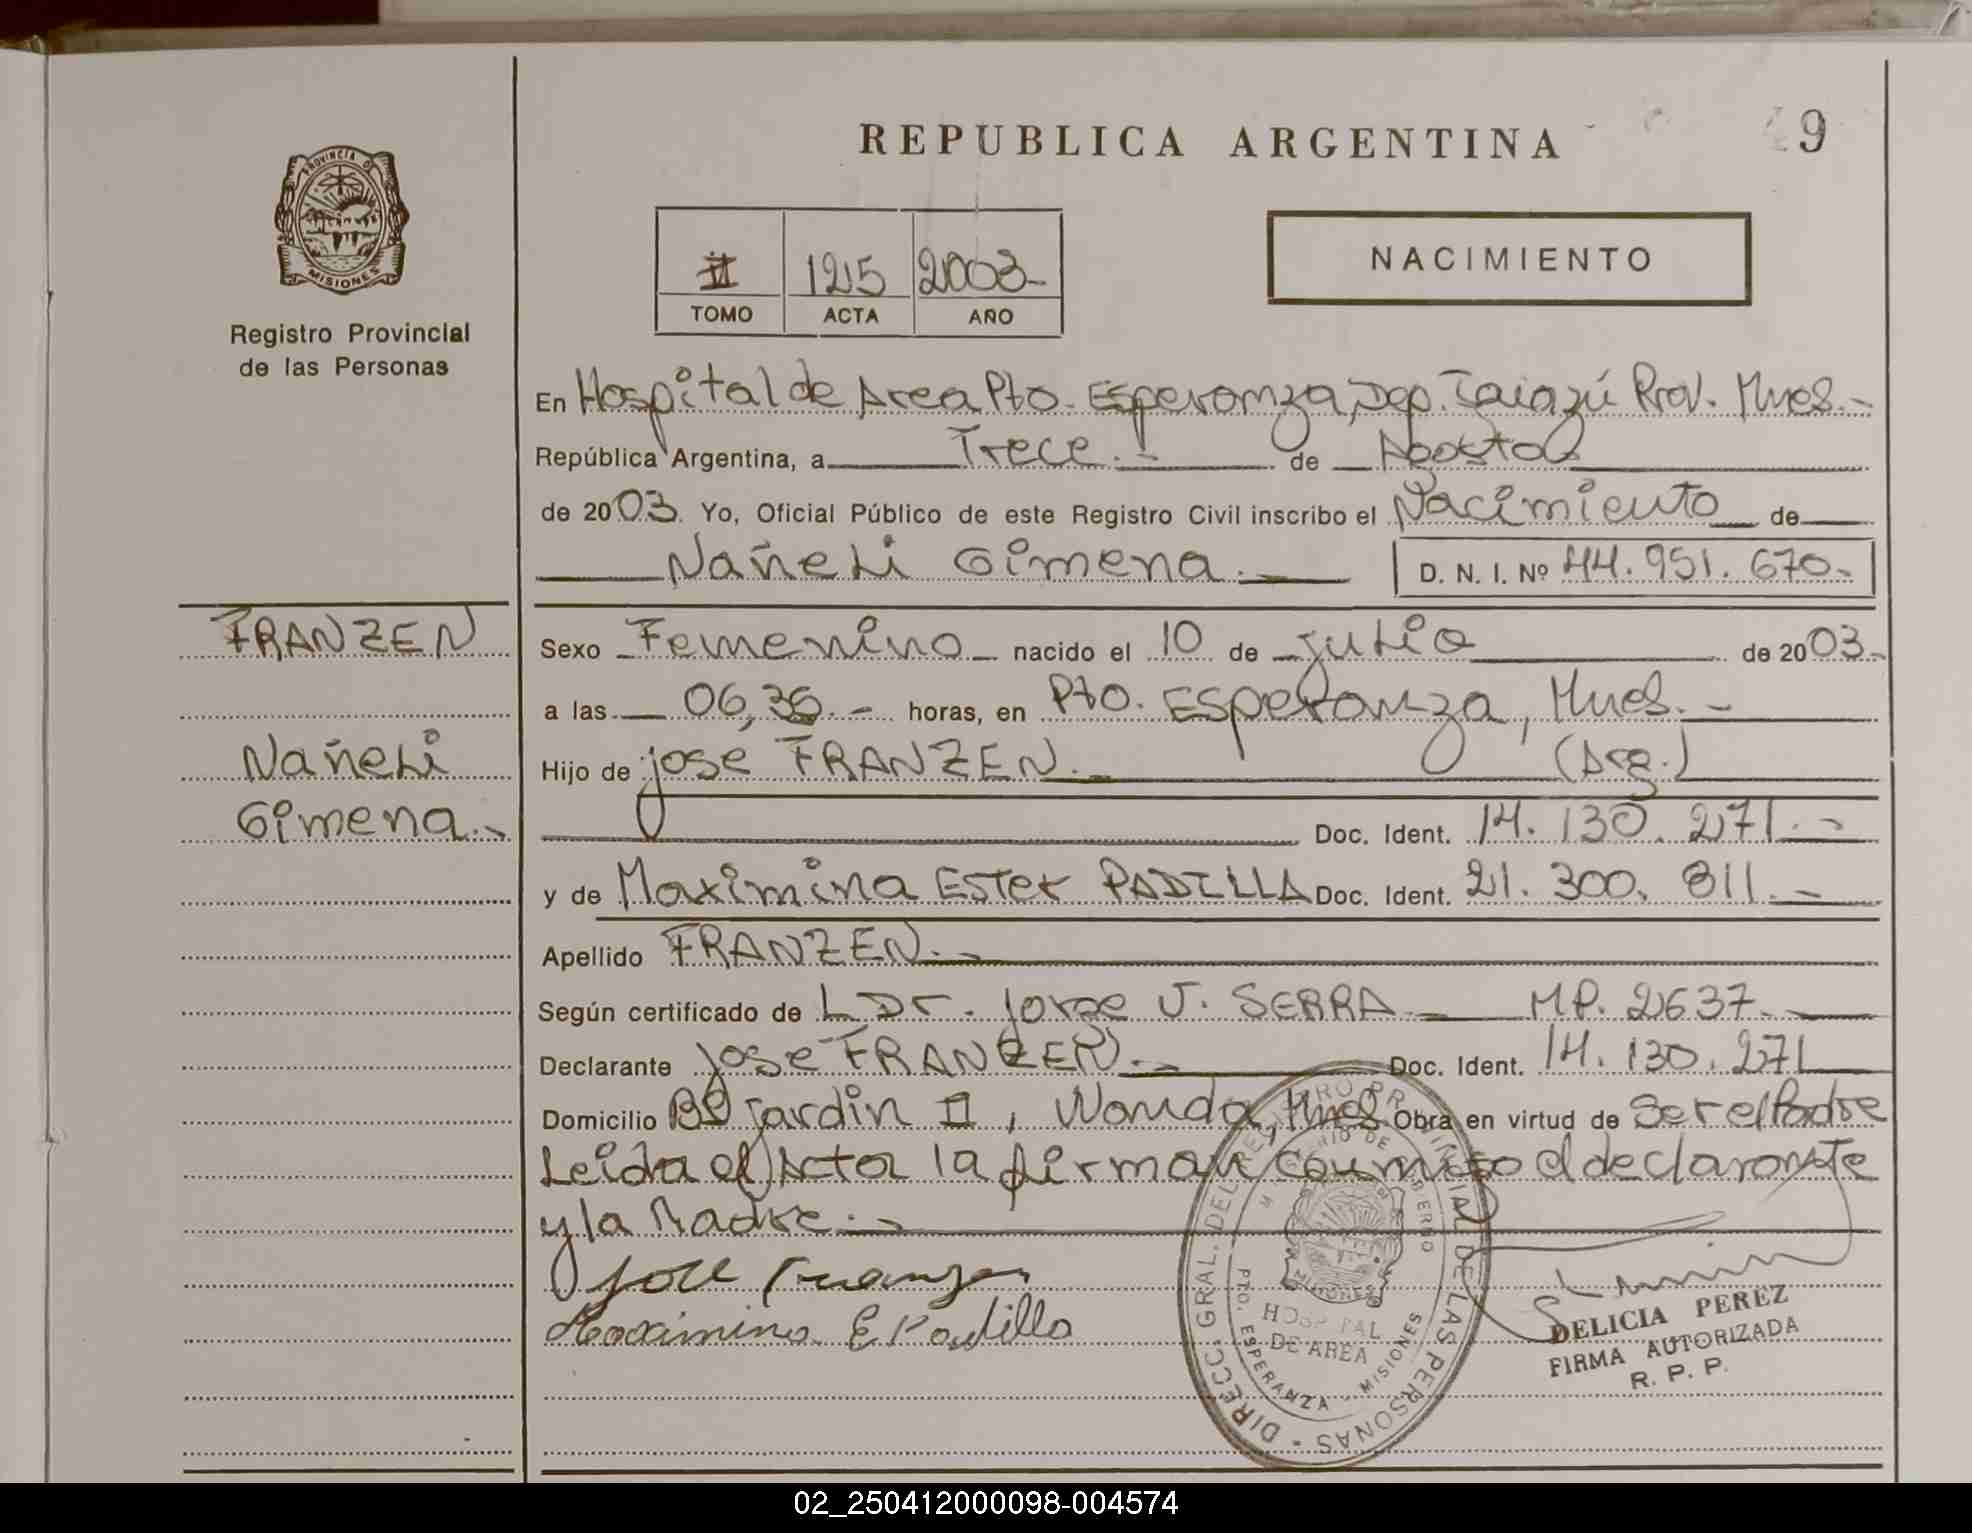 REPUBLICA ARGENTINA
9
PROVINCIA DE
MISIONES
Registro Provincial
de las Personas
II 125 2003-
TOMO ACTA AÑO
NACIMIENTO
En Hospital de Area Pto. Esperanza, Dep. Iguazú Prov. Mnes.-
República Argentina, a Trece.- de Agosto
de 2003. Yo, Oficial Público de este Registro Civil inscribo el Nacimiento de
Nañeli Gimena.- D. N. I. Nº 44.951.670.-
FRANZEN
Nañeli
Gimena.-
Sexo Femenino nacido el 10 de julio de 2003.-
a las 06,36.- horas, en Pto. Esperanza, Mnes.-
Hijo de josé FRANZEN.- (Arg.)
Doc. Ident. 14.130.271.-
y de Maximina Ester PADILLA Doc. Ident. 21.300.811.-
Apellido FRANZEN.-
Según certificado de L Dr. Jorge J. SERRA MP. 2637.
Declarante José FRANZEN.- Doc. Ident. 14.130.271
Domicilio Bº Jardin II, Wanda, Mnes Obra en virtud de Ser el Padre
Leida el Acta la firman conmigo el declarante
y la Madre.-
José Franzen
Maximina E Padilla
DIRECC. GRAL. DEL REGISTRO PROVINCIAL DE LAS PERSONAS
MINISTERIO DE GOBIERNO
MISIONES
HOSPITAL
DE AREA
PTO. ESPERANZA - MISIONES
DELICIA PEREZ
FIRMA AUTORIZADA
R. P. P.
02_250412000098-004574